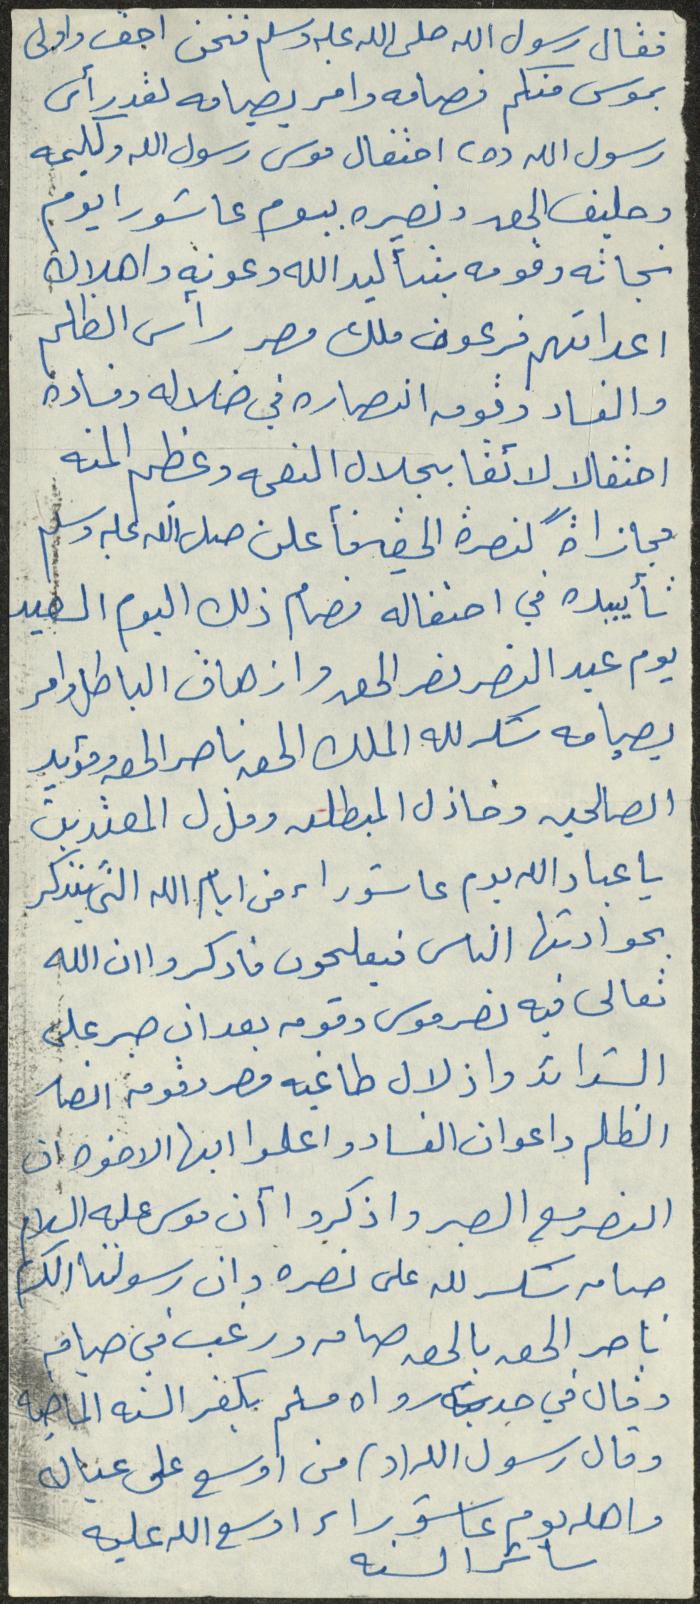 فقال رسول الله صلى الله عليه وسلم فنحن احق واولى
بموسى منكم فصامه وامر بصيامه لقد رأى
رسول الله (ص) احتفال موسى رسول الله وكليمه
وحليف الحق ونصيره بيوم عاشورا يوم
نجاته وقومه بتأييد الله وعونه واهلاك
اعدائهم فرعون ملك مصر رأس الظلم
والفساد وقومه انصاره في ضلاله وفساده
احتفالا لائقا بجلال النعمه وعظم المنه
مجازاة لنصرة الحق فأعلن صلى الله عليه وسلم
تأييده في احتفاله فصام ذلك اليوم السعيد
يوم عيد النصر نصر الحق وازهاق الباطل وامر
بصيامه شكر لله الملك الحق ناصر الحق ومؤيد
الصالحين وخاذل المبطلين ومذل المعتدين
يا عباد الله يوم عاشوراء من ايام الله التي يتذكر
بحوادثها الناس فيفلحون فاذكروا ان الله
تعالى فيه نصر موسى وقومه بعد ان صبر على
الشدائد واذلال طاغيه مصر وقومه انصار
الظلم واعوان الفساد واعلموا ايها الاخوه ان
النصر مع الصبر واذكروا أن موسى عليه السلام
صامه شكر لله على نصره وان رسولنا الكريم
ناصر الحق بالحق صامه ورغب في صيامه
وقال في حديث رواه مسلم يكفر السنه الماضيه
وقال رسول الله (ص) من اوسع على عياله
واهله يوم عاشوراء اوسع الله عليه
سائر السنه